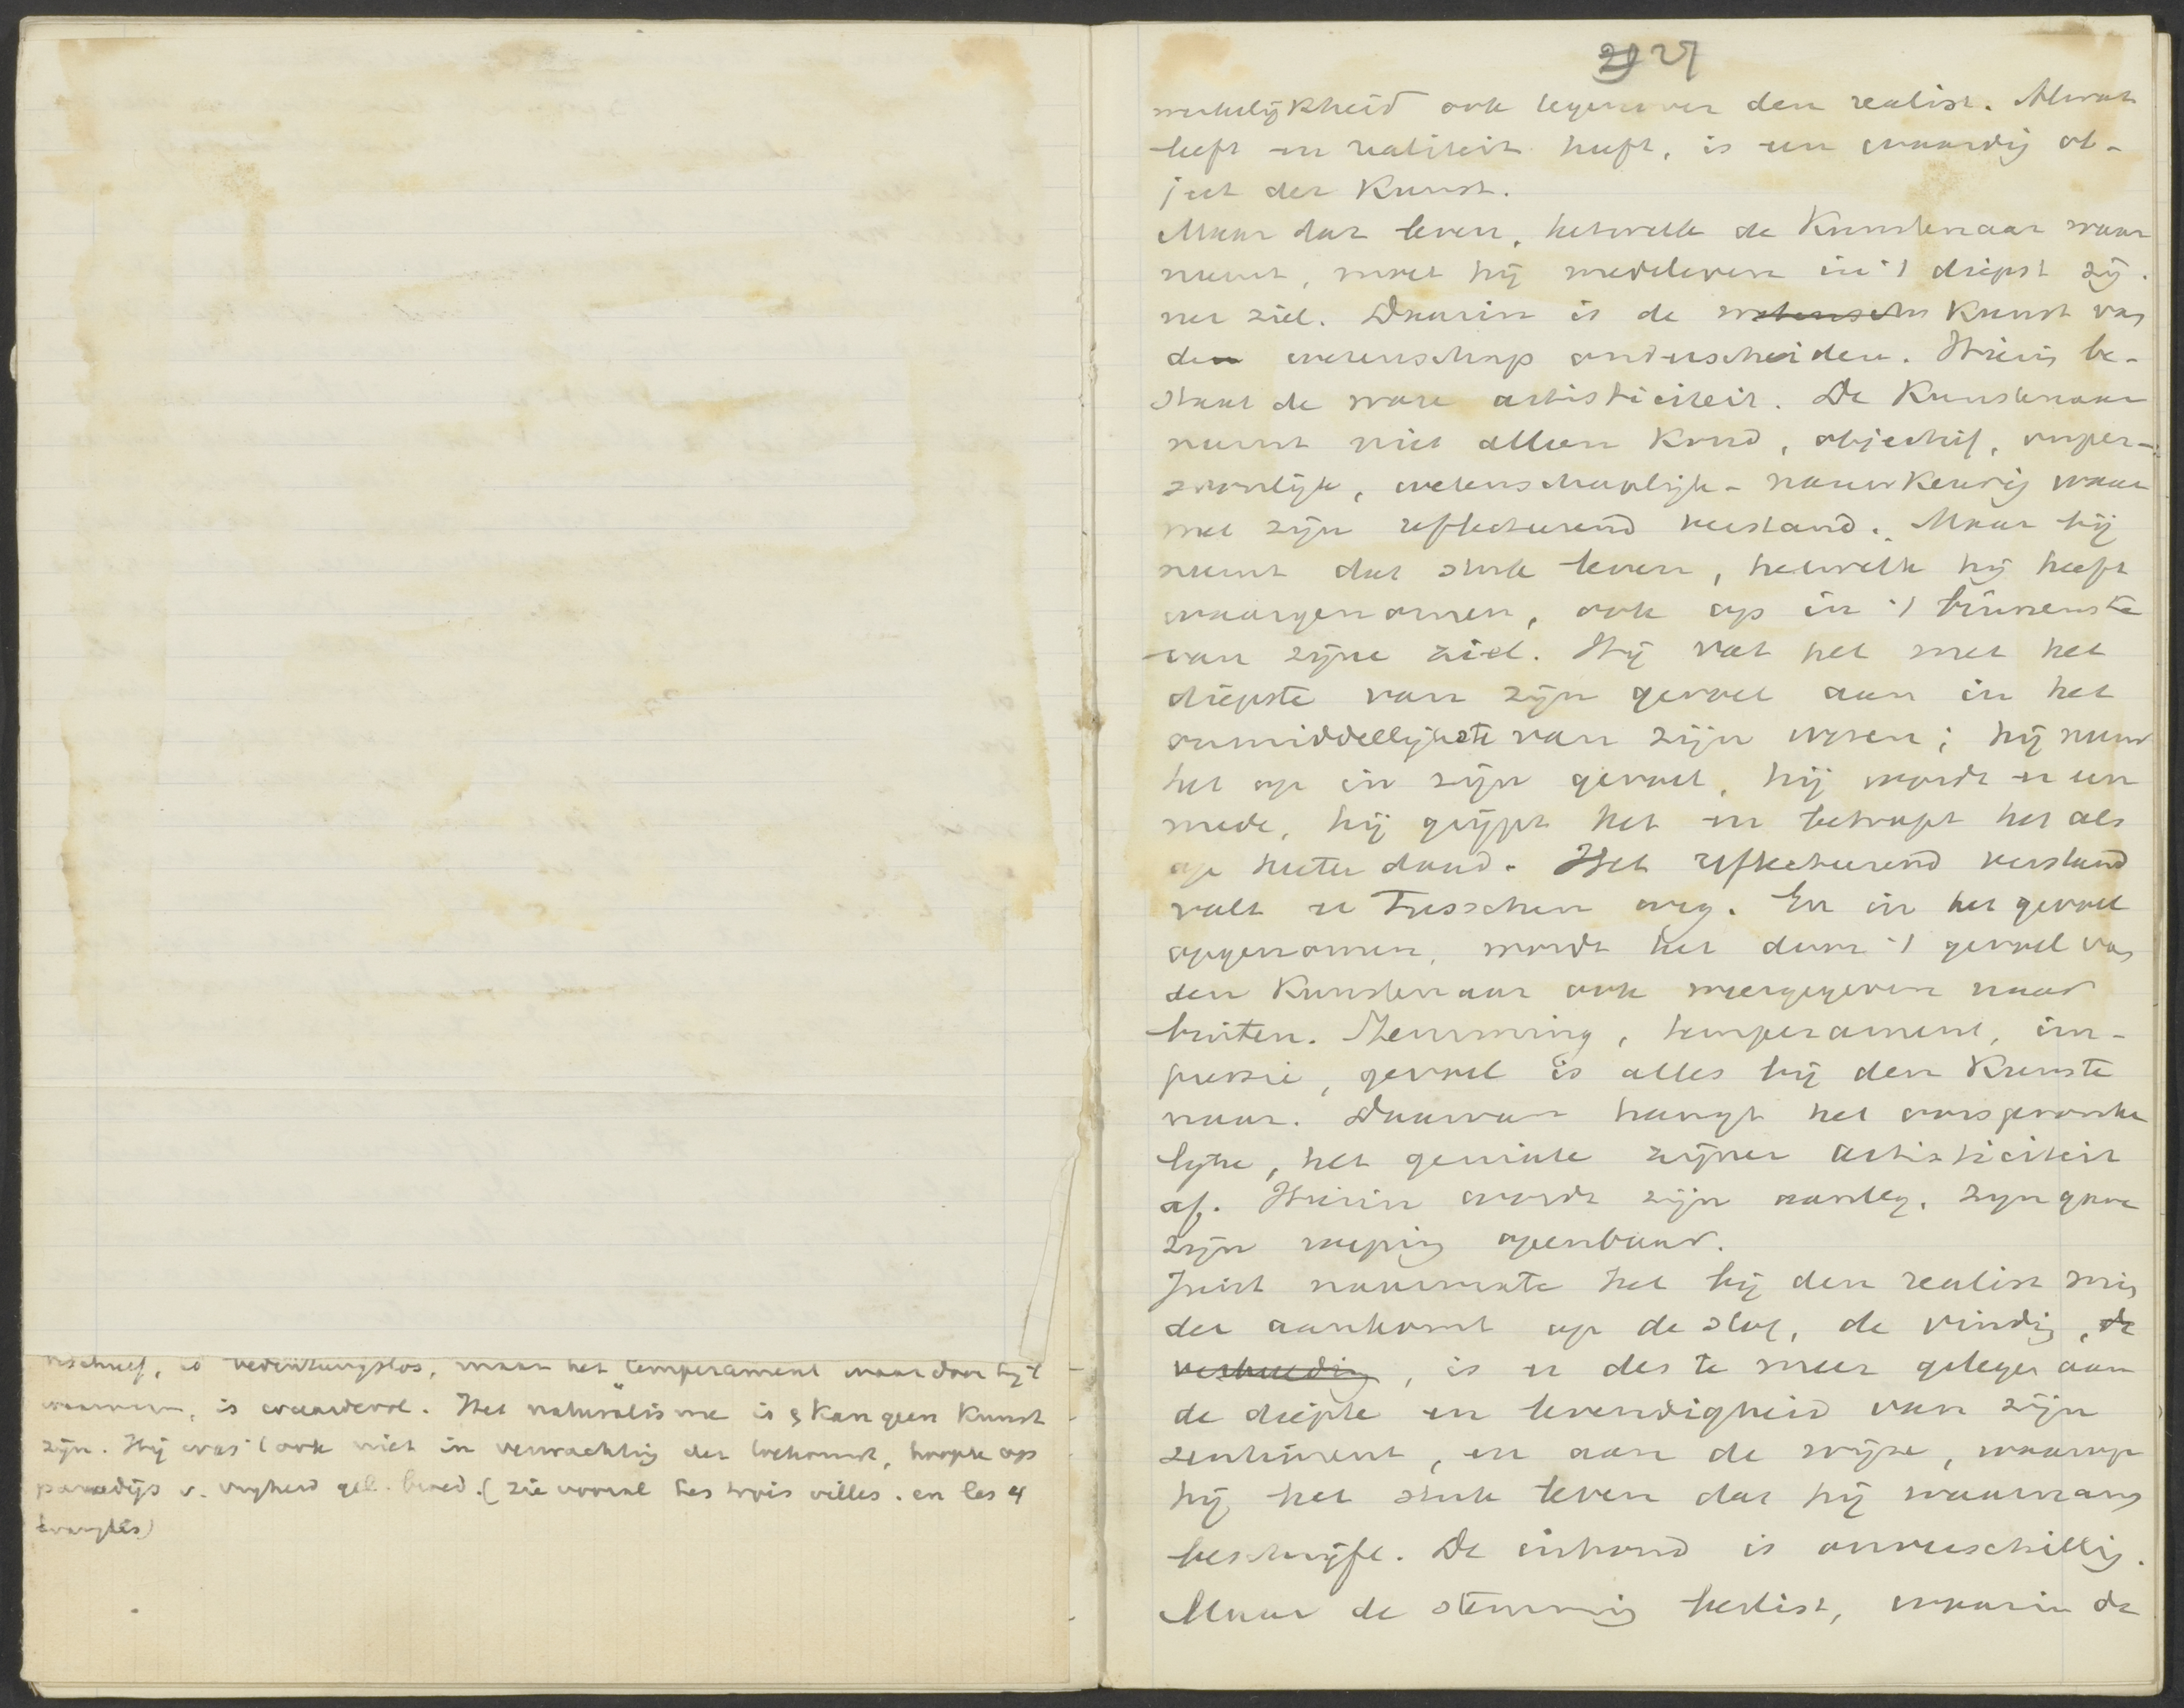 beschreef, is bedeutungslos, maar het "temperament waardoor hij 't
waarnam, is waardevol. Het naturalisme is & kan geen kunst
zijn. Hij was (ook niet in verwachting der toekomst, hoopte op
paradijs v. vrijheid gel. broed. (zie vooral les trois villes. en les 4
évangiles)
29 27
werkelijkheid ook tegenover den realist. Al wat
leeft en realiteit heeft, is een waardig ob-
ject der Kunst.
Maar dat leven, hetwelk de Kunstenaar waar
neemt, moet hij medeleven in 't diepst zij-
ner ziel. Daarin is de wetensch Kunst van
den wetenschap onderscheiden. Hierin be-
staat de ware artisticiteit. De Kunstenaar
neemt niet alleen koud, objectief, onper-
soonlijk, wetenschaplijk-nauwkeurig waar
met zijn reflecteerend verstand. Maar hij
neemt dat stuk leven, hetwelk hij heeft
waargenomen, ook op in 't binnenste
van zijne ziel. Hij vat het met het
diepste van zijn gevoel aan in het
onmiddellijkste van zijn wezen; hij neemt
het op in zijn gevoel, hij wordt er een
mede, hij grijpt het en betrapt het als
op heeter daad. Het reflecteerend verstand
valt er tusschen weg. En in het gevoel
opgenomen, wordt het door 't gevoel van
den Kunstenaar ook weergegeven naar
buiten. Stemming, temperament, im-
pressie, gevoel is alles bij den Kunste
naar. Daarvan hangt het oorspronke
lijke, het geniale zijner artisticiteit
af. Hierin wordt zijn aanleg, zijn gave
zijn roeping openbaar.
Juist naarmate het bij den realist min
der aankomt op de stof, de vinding, de
verbeelding, is er des te meer gelegen aan
de diepte en levendigheid van zijn
sentiment, en aan de wijze, waarop
hij het stuk leven dat hij waarnam
beschrijft. De inhoud is onverschillig.
Maar de stemming beslist, waarin de